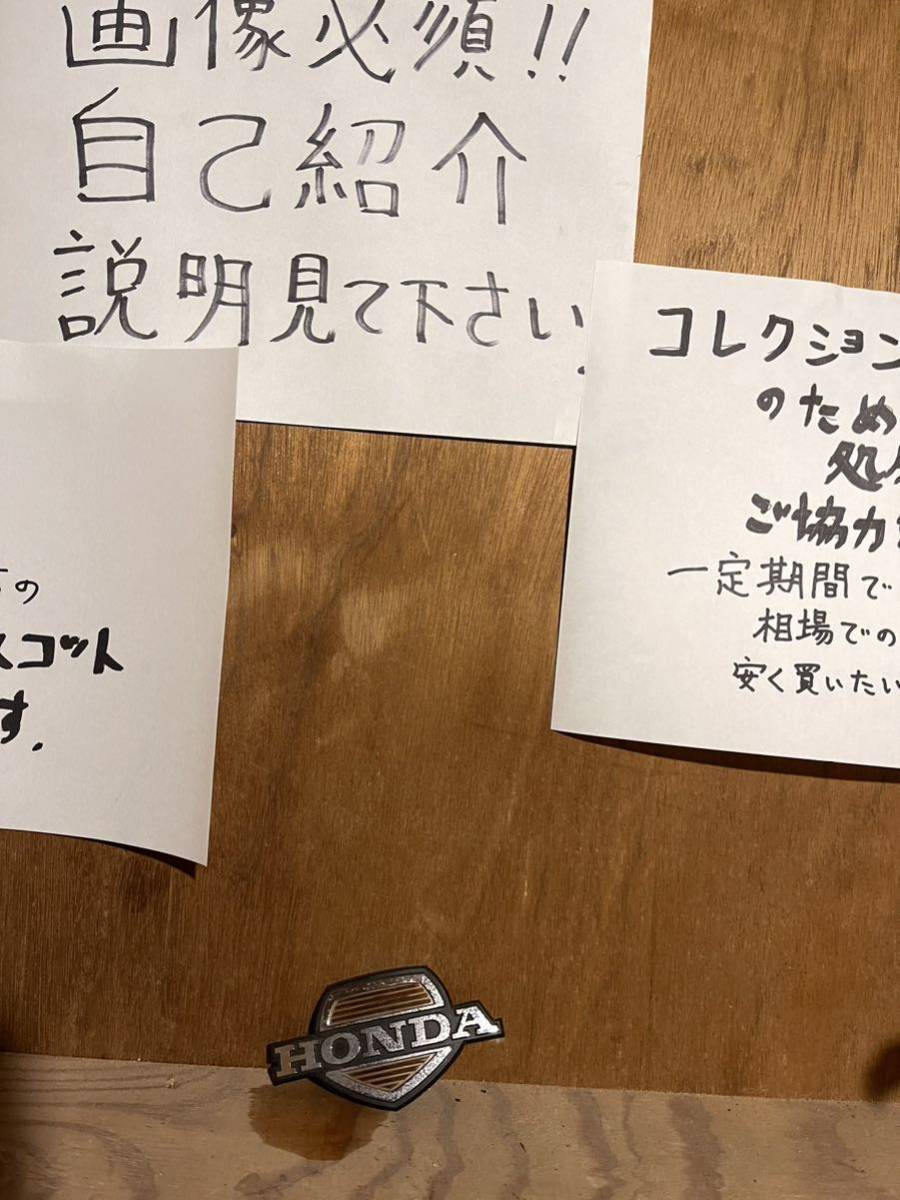 画像必須!!
自己紹介
説明見て下さい.
の
スコット
す.
コレクション
のため
処
ご協力
一定期間で
相場での
安く買いたい
HONDA